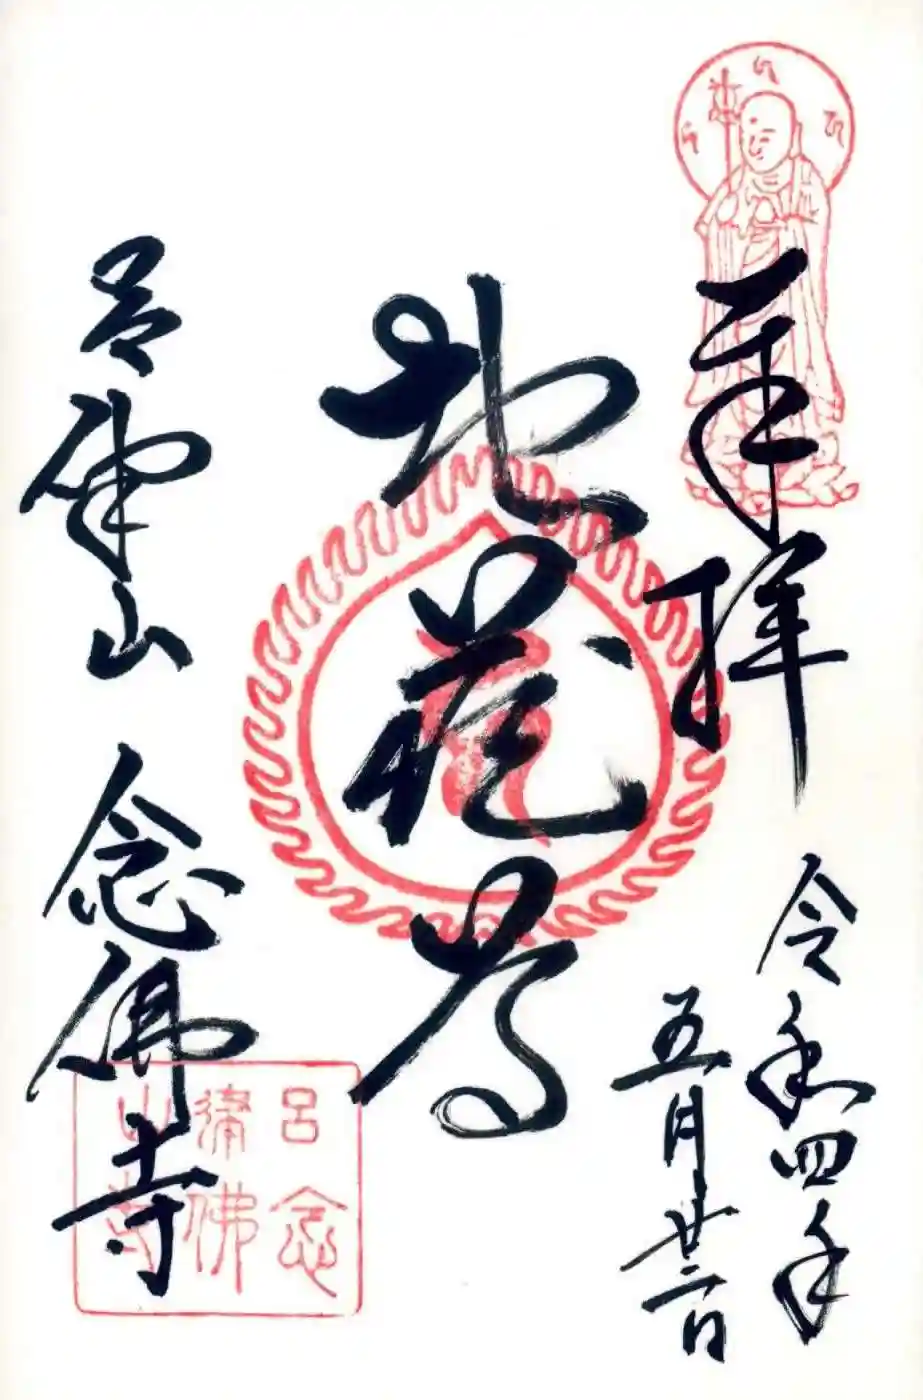 奉拝
令和四年
五月廿二日
地蔵尊
呂律山 念佛寺
呂律山
念佛寺